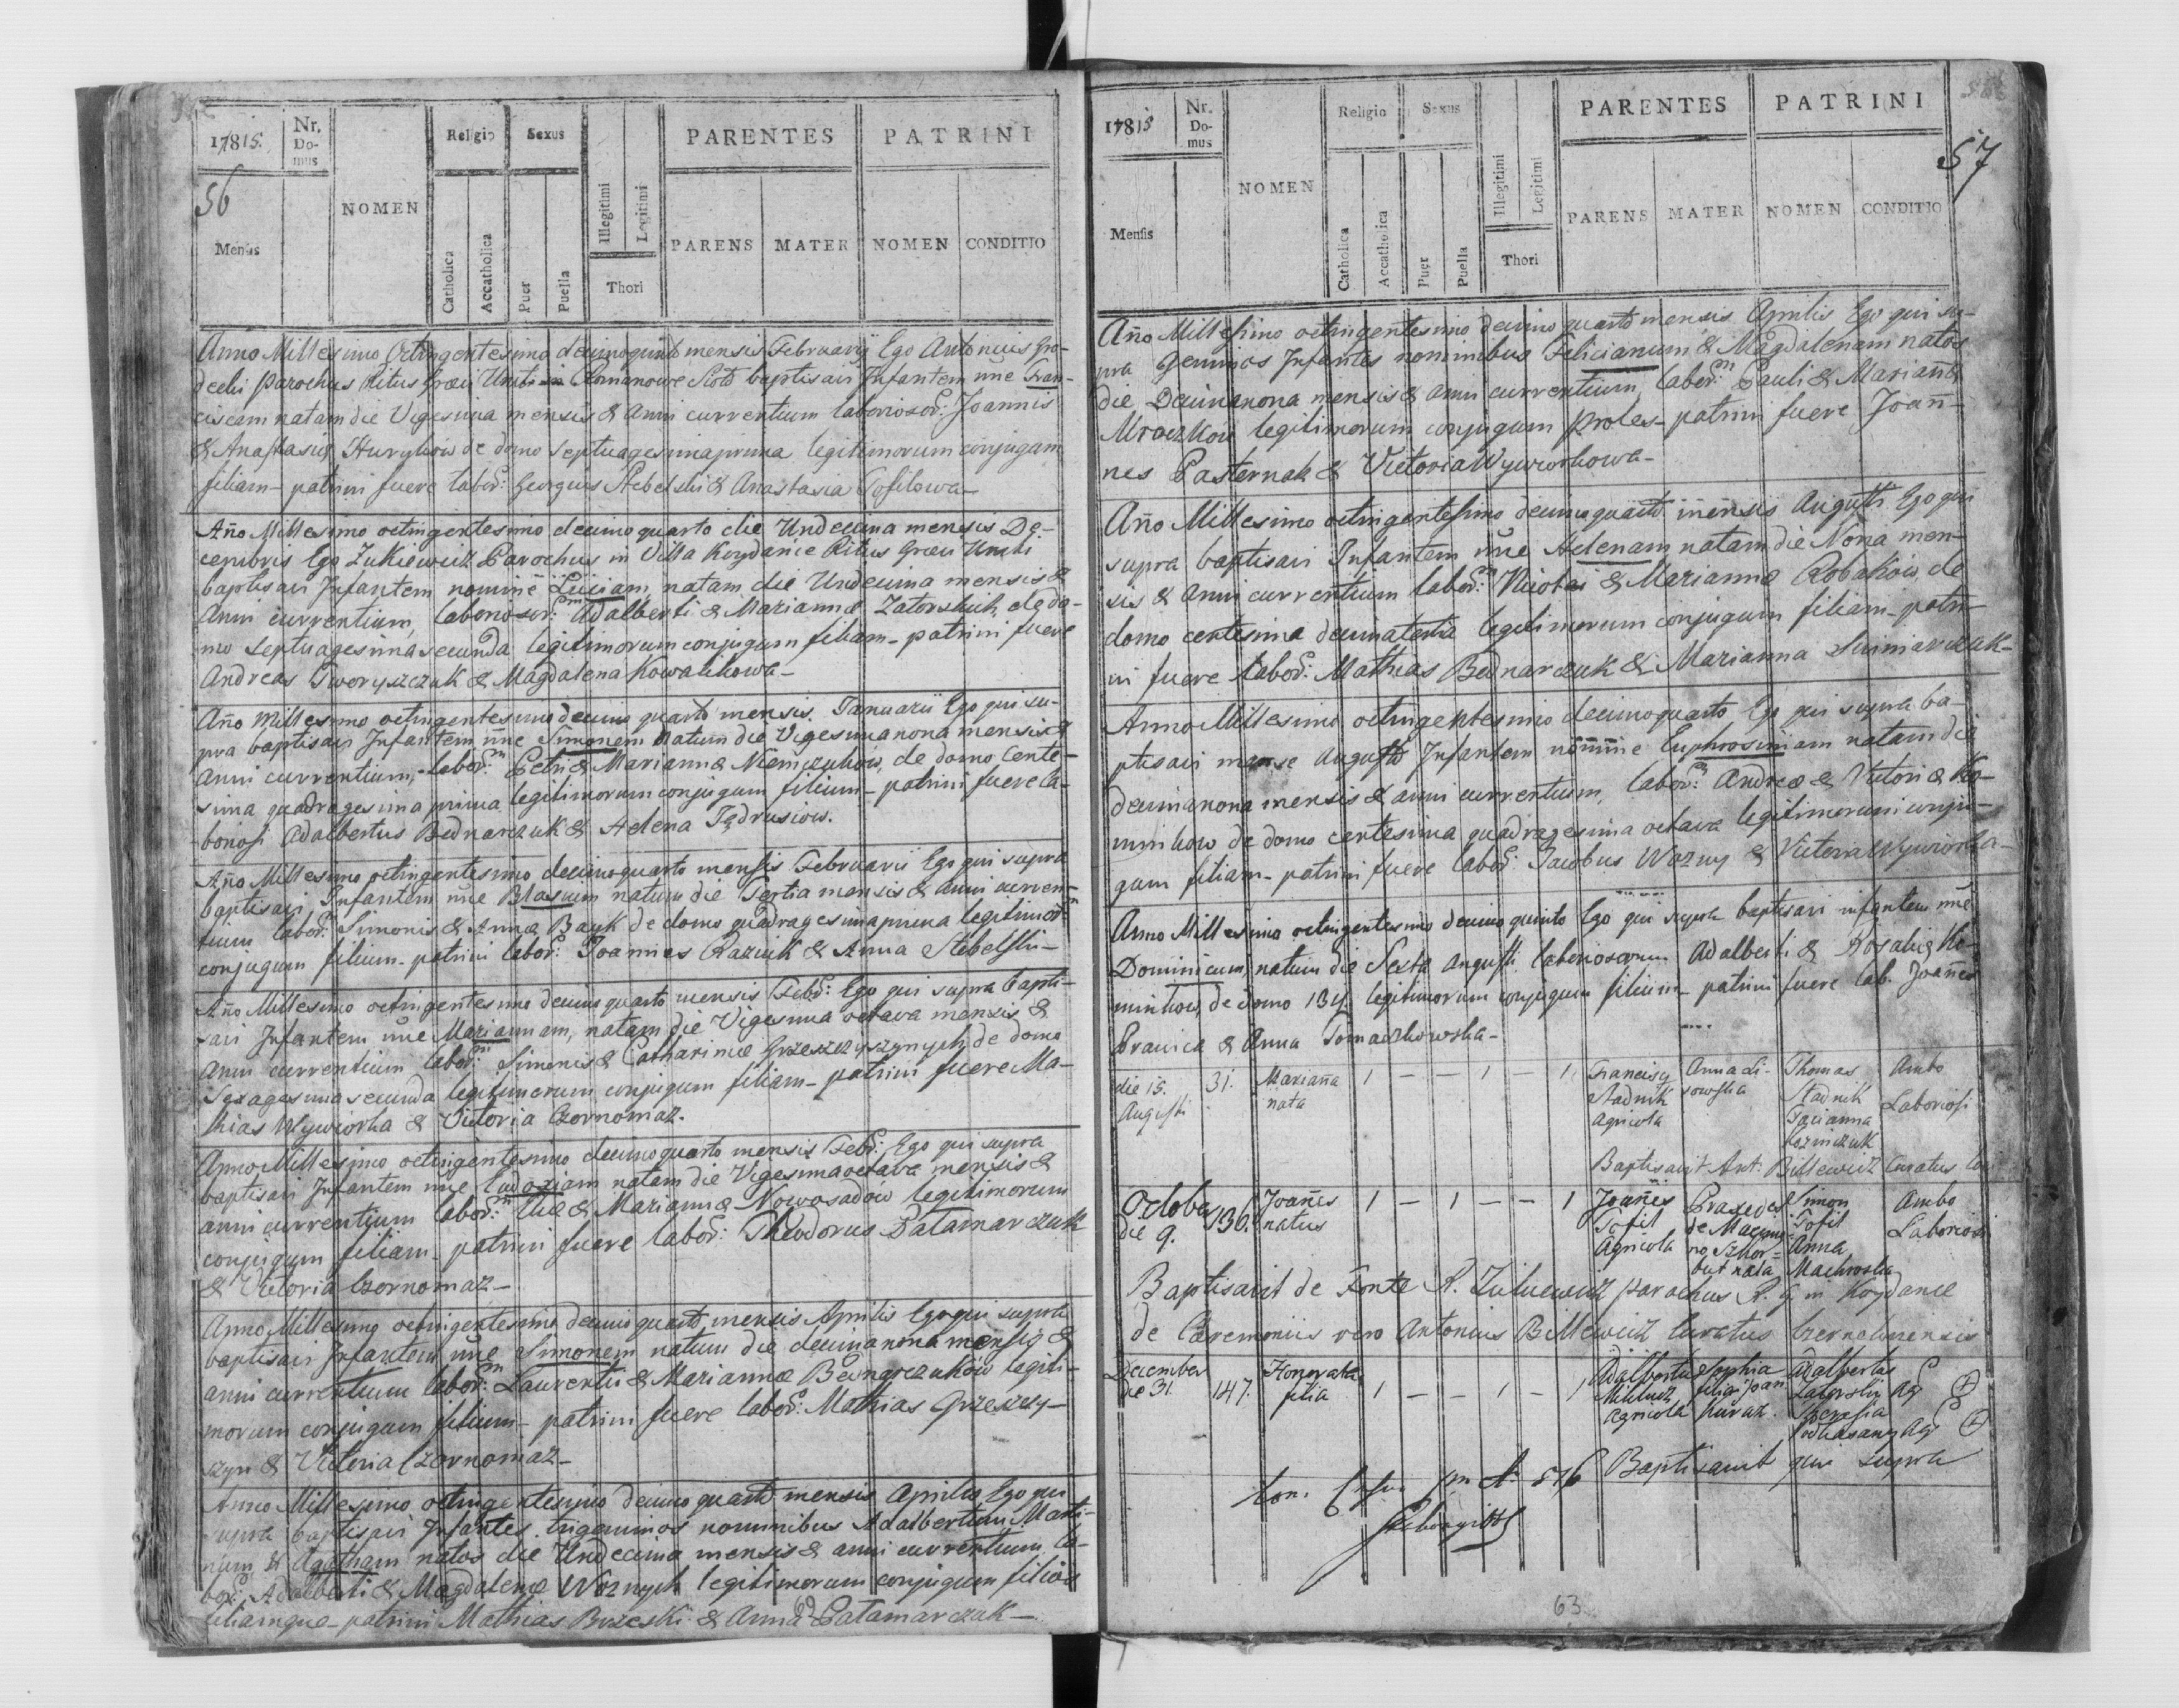 17815.
Nr. Domus
Religio
Sexus
PARENTES
PATRINI
56
Mensis
NOMEN
Catholica
Accatholica
Puer
Puella
Illegitimi
Legitimi
Thori
PARENS
MATER
NOMEN
CONDITIO
Anno Millesimo Octingentesimo decimoquinto mensis Februarij Ego Antonius Gro-
decki Parochus Ritus Graeci Uniti in Romanowe Sioło baptisavi Infantem nñe Fran-
ciscam natam die Vigesima mensis & Anni currentium laboriosor: Joannis
& Anastasiæ Hurykow de domo septuagesimaprima legitimorum conjugam
filiam – patrini fuere labor: Georgius Stebelski & Anastasia Tofilowa –
Año Millesimo octingentesimo decimo quarto die Undecima mensis De-
cembris Ego Zukiewicz Parochus in Villa Koydance Ritus Græci Uniti
baptisavi Infantem nomine Luciam, natam die Undecima mensis &
Anni currentium, laboriosor: Adalberti & Mariannæ Zatorskich de do-
mo septuagesimasecunda legitimorum conjugum filiam – patrini fuere
Andreas Tworyszczuk & Magdalena Kowalikowa –
Año Millesimo octingentesimo decimo quarto mensis Januarii Ego qui su-
pra baptisavi Infantem nñe Simonem natum die Vigesimanona mensis &
anni currentium, labor: Petri & Mariannæ Niemczukow, de domo Cente-
sima quadragesima prima legitimorum conjugum filium – patrini fuere la-
boriosi Adalbertus Bednarczuk & Helena Jędrusiow.
Año Millesimo octingentesimo decimoquarto mensis Februarii Ego qui supra
baptisavi Infantem nñe Blasium natum die Tertia mensis & anni curren-
tium labor: Simonis & Annæ Bauk de domo quadragesimaprima legitimor:
conjugum filium – patrini labor: Joannes Raziuk & Anna Stebelski –
Año Millesimo octingentesimo decimo quarto mensis Febr: Ego qui supra bapti-
savi Infantem nñe Mariannam, natam die Vigesima octava mensis &
anni currentium labor: Simonis & Catharinæ Grzeszczyszynych de domo
Sexagesimasecunda legitimorum conjugum filiam – patrini fuere Ma-
thias Wywiorka & Victoria Czornomaz.
Anno Millesimo octingentesimo decimoquarto mensis Febr: Ego qui supra
baptisavi Infantem nñe Eudoxiam natam die Vigesimaoctava mensis &
anni currentium labor: Eliæ & Mariannæ Nowosadow legitimorum
conjugum filiam – patrini fuere labor: Theodorus Patamarczuk
& Victoria Czornomaz –
Anno Millesimo octingentesimo decimo quarto mensis Aprilis Ego qui supra
baptisavi Infantem nñe Simonem natum die decimanona mensis &
anni currentium labor: Laurentii & Mariannæ Bednarczukow legiti-
morum conjugum filium – patrini fuere labor: Mathias Grzeszczy-
szyn & Victoria Czornomaz –
Anno Millesimo octingentesimo decimo quarto mensis Aprilis Ego qui
supra baptisavi Infantes trigeminos nominibus Adalbertum, Marti-
num, & Agatham natos die Undecima mensis & anni currentium la-
bor: Adalberti & Magdalenæ Woznych legitimorum conjugum filios
filiamque – patrini Mathias Brzeski & Anna Patamarczuk –
69
17815
Nr. Domus
Religio
Sexus
PARENTES
PATRINI
57
Mensis
NOMEN
Catholica
Accatholica
Puer
Puella
Illegitimi
Legitimi
Thori
PARENS
MATER
NOMEN
CONDITIO
Año Millesimo octingentesimo decimo quarto mensis Aprilis Ego qui su-
pra geminos Infantes nominibus Felicianum & Magdalenam natos
die Decimanona mensis & anni currentium, labor: Pauli & Mariannæ
Mroczkow legitimorum conjugum proles – patrini fuere Joan-
nes Pasternak & Victoria Wywiorkowa –
Año Millesimo octingentesimo decimoquarto mensis Augusti Ego qui
supra baptisavi Infantem nñe Helenam natam die Nona men-
sis & Anni currentium labor: Nicolai & Mariannæ Robakow, de
domo centesima decimatertia legitimorum conjugum filiam – patri-
ni fuere labor: Mathias Bednarczuk & Marianna Sminiarczuk –
Anno Millesimo octingentesimo decimoquarto Ego qui supra ba-
ptisavi mense Augusto Infantem nomine Euphrosiniam natam die
decimanona mensis & anni currentium, labor: Andreæ & Victoriæ Ko-
minkow de domo centesima quadragesima octava legitimorum conju-
gum filiam – patrini fuere labor: Jacobus Wozny & Victoria Wywiorka –
Anno Millesimo octingentesimo decimo quinto Ego qui supra baptisavi infantem nñe
Dominicum, natum die Sexta Augusti laboriosorum Adalberti & Rosaliæ Ko-
minkow, de domo 134 legitimorum conjugum filium – patrini fuere lab. Joannes
Prauica & Anna Tomaszkowska –
die 15. Augusti
31.
Marianna nata
1 – – 1 – 1
Francisc9 Stadnik Agricola
Anna Lisowska
Thomas Stadnik Tacianna Kozmiczuk
Ambo Laboriosi
Baptisavit Ant: Billewicz Curatus
October die 9.
136.
Joannes natus
1 – 1 – – 1
Joannes Tofil Agricola
Praxedes de Szkorbut nata
Simon Tofil Anna Machroska
Ambo Laboriosi
Baptisavit de Fonte R. Zukiewicz parochus R. g. in Koydance
de Ceremoniis vero Antonius Billewicz Curatus
December die 31.
147.
Honorata filia
1 – – 1 – 1
Adalbertus Agricola
Sophia filia
Adalbertus Zatorski Theresia
Agr
Baptisavit qui supra
63